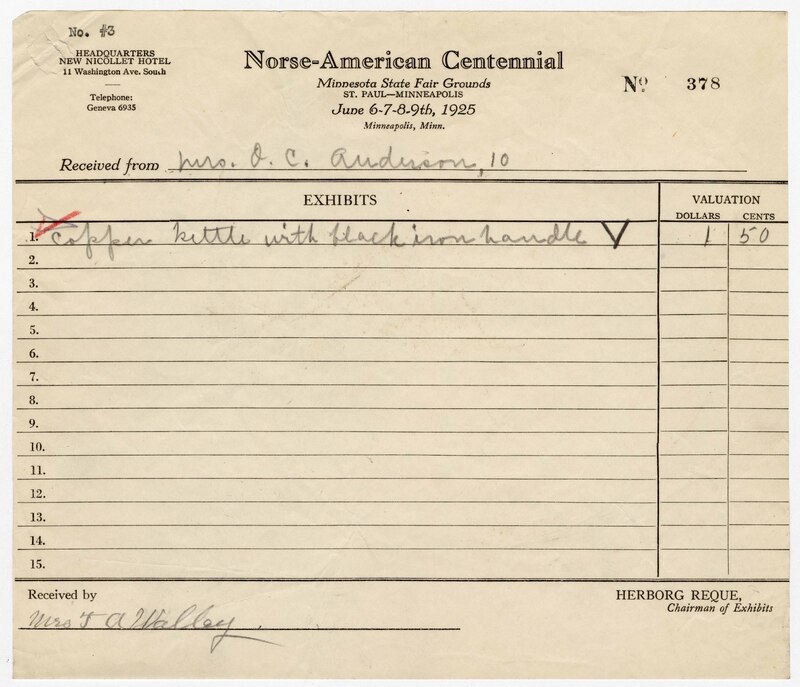 No. #3
HEADQUARTERS
NEW NICOLLET HOTEL
11 Washington Ave. South
Telephone:
Geneva 6935
Norse-American Centennial
Minnesota State Fair Grounds
ST. PAUL—MINNEAPOLIS
June 6-7-8-9th, 1925
Minneapolis, Minn.
Nº 378
Received from Mrs. O. C. Anderson, 10
EXHIBITS
VALUATION
DOLLARS CENTS
1. Copper kettle with black iron handle V 1 50
2.
3.
4.
5.
6.
7.
8.
9.
10.
11.
12.
13.
14.
15.
Received by
Mrs T A Walley
HERBORG REQUE,
Chairman of Exhibits